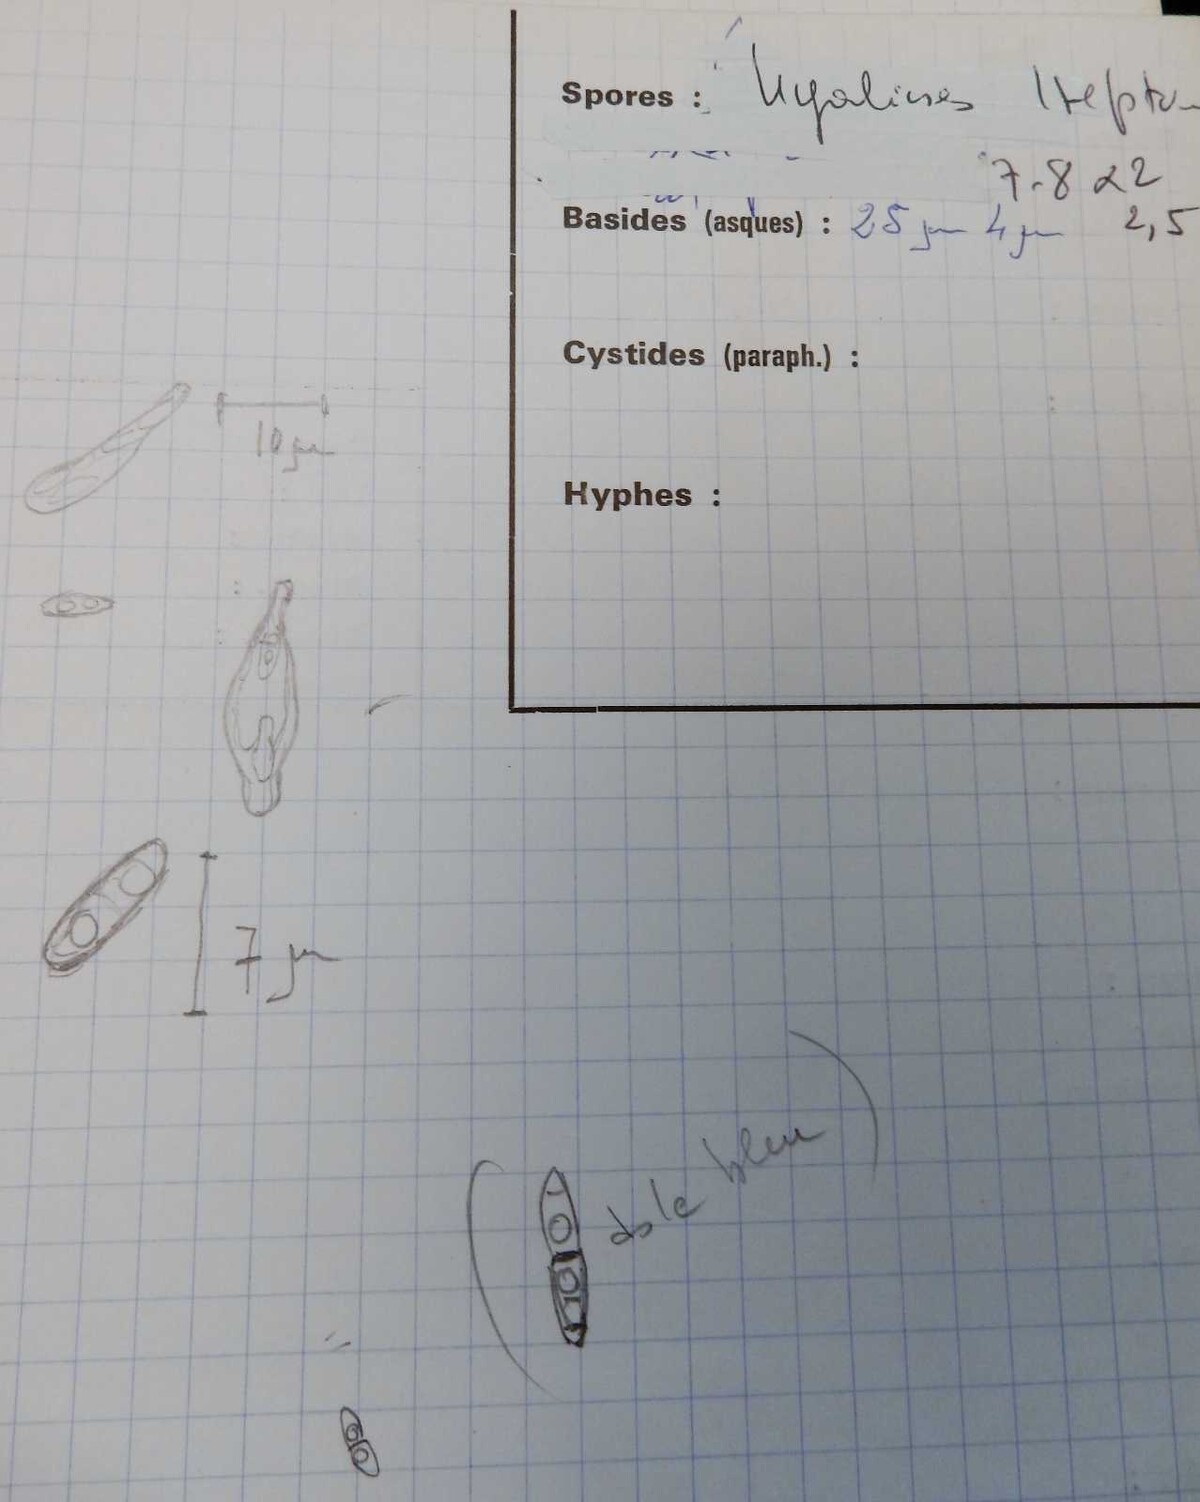 Spores : Hyalines 1 sept
7-8 x 2
Basides (asques) : 25 µm 4 µm 2,5
Cystides (paraph.) :
10 µm
Hyphes :
7 µm
bleu